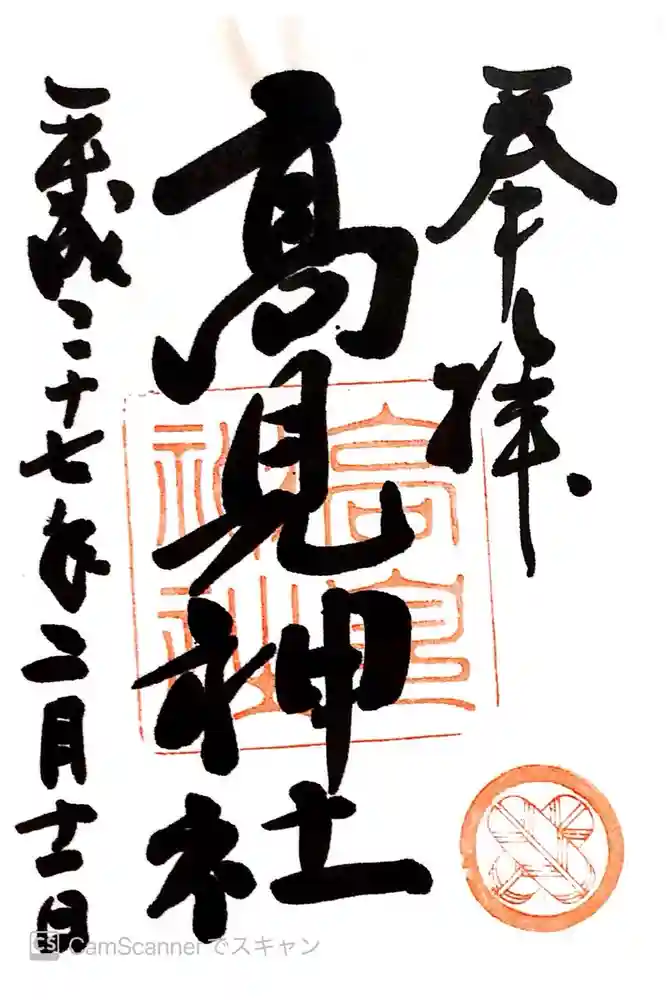 奉拝
高見神社
高見神社
平成二十七年二月十一日
CS CamScannerでスキャン